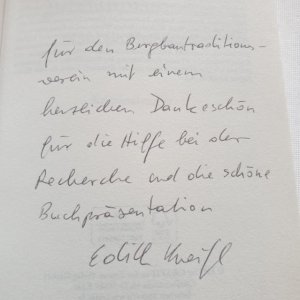 für den Bergbautraditions-
verein mit einem
herzlichen Dankeschön
für die Hilfe bei der
Recherche und die schöne
Buchpräsentation
Edith Kneifl